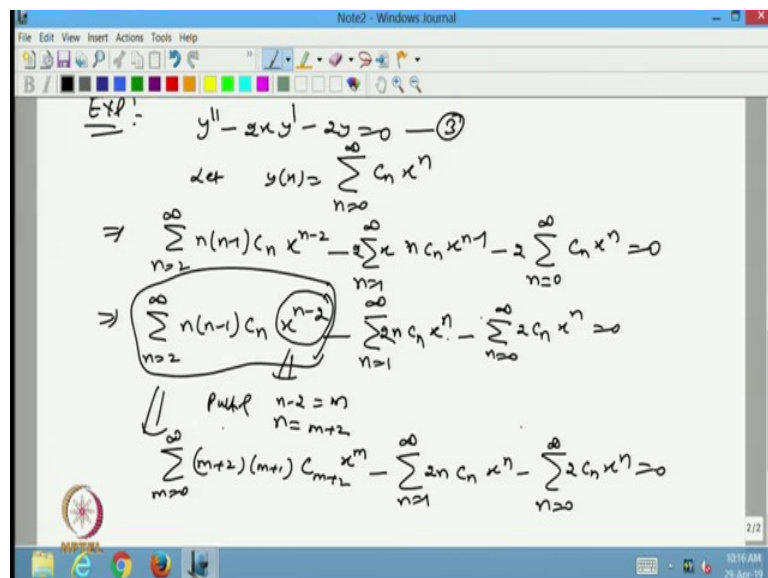 Note2 - Windows Journal
File Edit View Insert Actions Tools Help
B I
Exp!:
y'' - 2xy' - 2y = 0 — (3)
Let y(x) = ∑_{n=0}^{∞} c_n x^n
⇒ ∑_{n=2}^{∞} n(n-1) c_n x^{n-2} - 2∑_{n=1}^{∞} x n c_n x^{n-1} - 2 ∑_{n=0}^{∞} c_n x^n = 0
⇒ ∑_{n=2}^{∞} n(n-1) c_n x^{n-2} - ∑_{n=1}^{∞} 2n c_n x^n - ∑_{n=0}^{∞} 2 c_n x^n = 0
n-2 = m
n = m+2
∑_{m=0}^{∞} (m+2)(m+1) C_{m+2} x^m - ∑_{n=1}^{∞} 2n c_n x^n - ∑_{n=0}^{∞} 2 c_n x^n = 0
NPTEL
2/2
10:16 AM
29-Apr-19